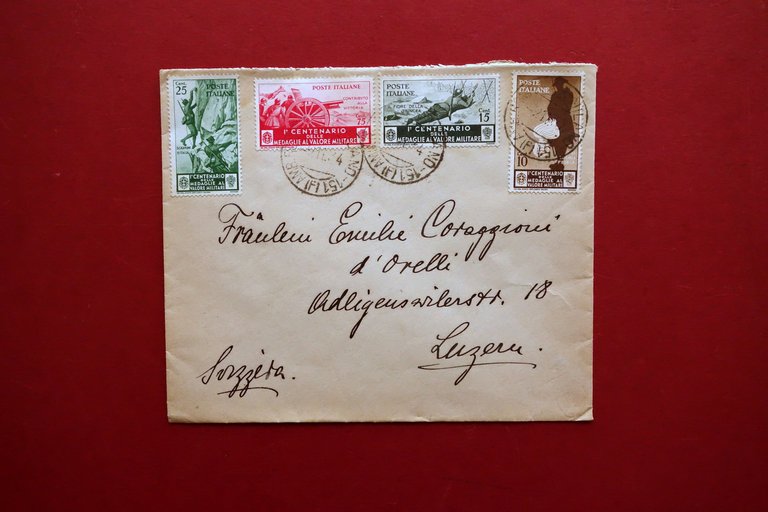 25 Cent.
POSTE ITALIANE
I° CENTENARIO
DELLE
MEDAGLIE AL
VALORE MILITARE
POSTE ITALIANE
CONTRIBUTO
ALLA
VITTORIA
75
I° CENTENARIO
DELLE
MEDAGLIE AL VALORE MILITARE
POSTE
ITALIANE
FIORE DELLA
Cent.
15
I° CENTENARIO
DELLE
MEDAGLIE AL VALORE MILITARE
POSTE
ITALIANE
10
I° CENTENARIO
DELLA
MEDAGLIE AL
VALORE MILITARI
Fräulein Emilie Coraggioni
d'Orelli
Adligenswilerstr. 18
Luzern.
Svizzera.